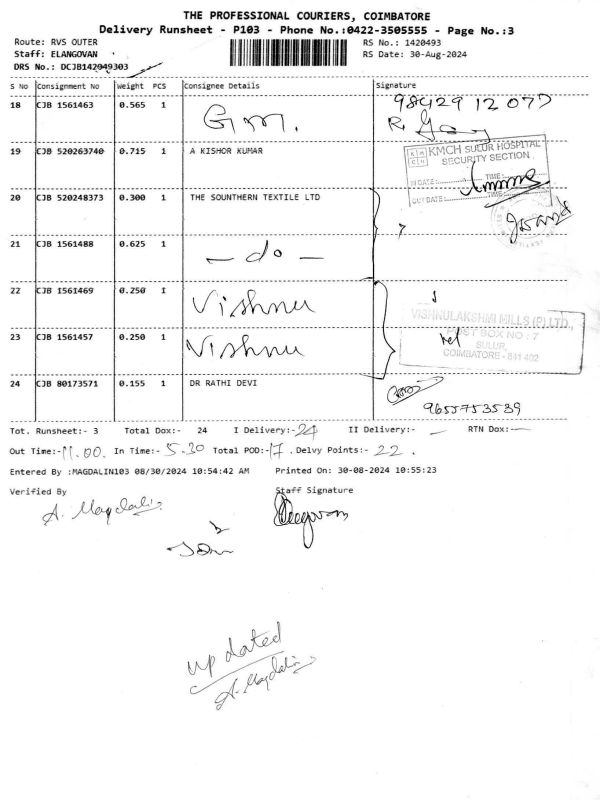 THE PROFESSIONAL COURIERS, COIMBATORE
Delivery Runsheet - P103 - Phone No.:0422-3505555 - Page No.:3
Route: RVS OUTER
Staff: ELANGOVAN
DRS No.: DCJB142049303
RS No.: 1420493
RS Date: 30-Aug-2024
S No Consignment No Weight PCS Consignee Details Signature
18 CJB 1561463 0.565 1 G.M. 98429 12077
19 CJB 520263740 0.715 1 A KISHOR KUMAR
KMCH SULUR HOSPITAL
SECURITY SECTION
IN DATE: TIME:
OUT DATE: TIME:
20 CJB 520248373 0.300 1 THE SOUNTHERN TEXTILE LTD
21 CJB 1561488 0.625 1 - do -
22 CJB 1561469 0.250 1 Vishnu
23 CJB 1561457 0.250 1 Vishnu
VISHNULAKSHMI MILLS (P) LTD.,
POST BOX NO : 7
SULUR,
COIMBATORE - 641 402
24 CJB 80173571 0.155 1 DR RATHI DEVI
9655753539
Tot. Runsheet:- 3 Total Dox:- 24 I Delivery:- 24 II Delivery:- - RTN Dox:- -
Out Time:- 11.00. In Time:- 5.30 Total POD:- 17. Delvy Points:- 22.
Entered By :MAGDALIN103 08/30/2024 10:54:42 AM Printed On: 30-08-2024 10:55:23
Verified By Staff Signature
A. Magdalin
updated
A. Magdalin